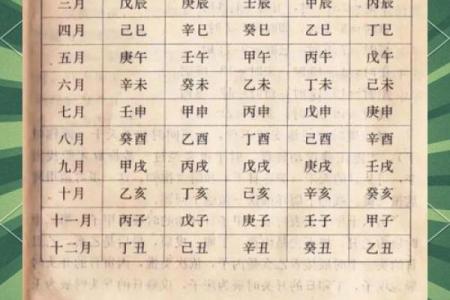 三月 戊辰 庚辰 壬辰 甲辰 丙辰
四月 己巳 辛巳 癸巳 乙巳 丁巳
五月 庚午 壬午 甲午 丙午 戊午
六月 辛未 癸未 乙未 丁未 己未
七月 壬申 甲申 丙申 戊申 庚申
八月 癸酉 乙酉 丁酉 己酉 辛酉
九月 甲戌 丙戌 戊戌 庚戌 壬戌
十月 乙亥 丁亥 己亥 辛亥 癸亥
十一月 丙子 戊子 庚子 壬子 甲子
十二月 丁丑 己丑 辛丑 癸丑 乙丑